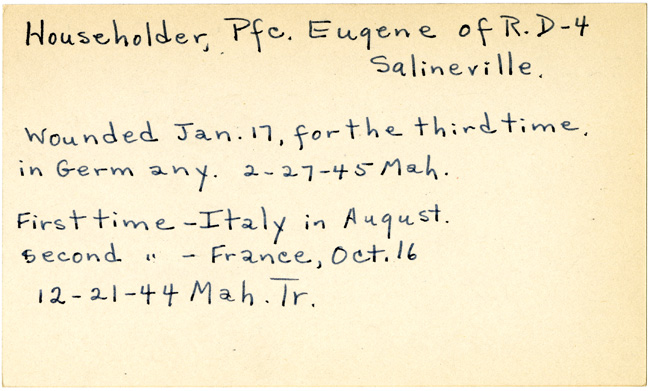 Householder, Pfc. Eugene of R.D-4
Salineville.
Wounded Jan. 17, for the third time.
in Germ any. 2-27-45 Mah.
First time - Italy in August.
Second " - France, Oct. 16
12-21-44 Mah. Tr.